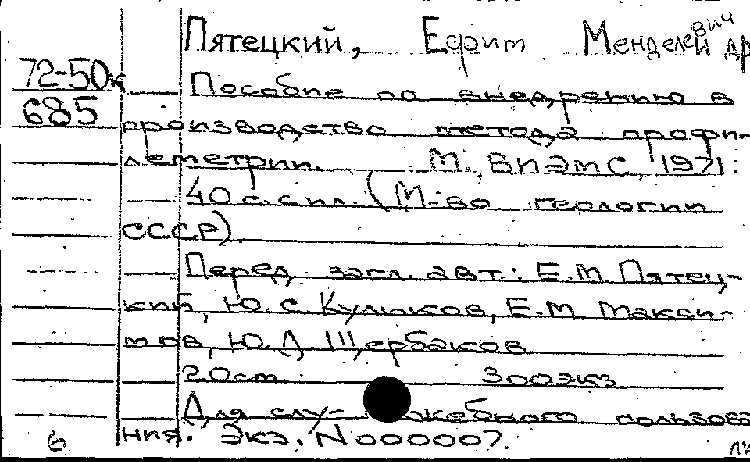 Пятецкий, Ефим Менделевич др
72-50к Пособие по внедрению в
685 производство метода профи-
леметрии. М., ВИЭМС, 1971.
40 с. с ил. (М-во геологии
СССР).
Перед загл. авт.: Е.М. Пятец-
кий, Ю.С. Куликов, Е.М. Макси-
мов, Ю.А. Щербаков
20 см. 300 экз
Для слу- жебного пользова
ния. Экз. N000007.
6